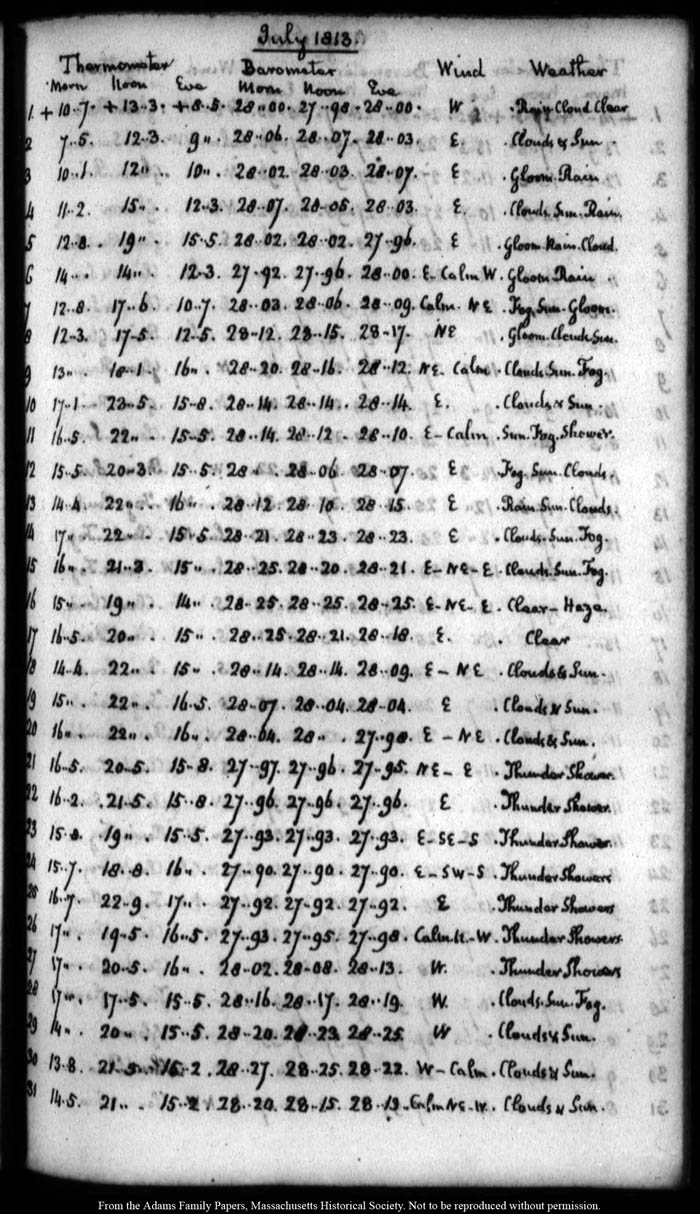 July 1813.
Thermometer Barometer Wind Weather
Morn Noon Eve Morn Noon Eve
1. +10..7. +13..3. +8..5. 28..00. 27..98..28..00. W .Rain Cloud Clear
2 7..5. 12..3. 9". 28..06. 28..07. 28..03. E. .Clouds & Sun.
3 10..1. 12". 10". 28..02. 28..03. 28..07. E .Gloom.Rain.
4 11..2. 15". 12..3. 28..07. 28..05. 28..03. E. .Clouds.Sun.Rain.
5 12..8. 19". 15..5. 28..02. 28..02. 27..96. E .Gloom.Rain.Cloud.
6 14". 14". 12..3. 27..92. 27..96. 28..00. E. Calm W. Gloom.Rain.
7 12..8. 17..6 10..7. 28..03. 28..06. 28..09. Calm. NE .Fog.Sun.Gloom.
8 12..3. 17..5. 12..5. 28..12. 28..15. 28..17. NE .Gloom.Clouds.Sun.
9 13". 18..1. 16". 28..20. 28..16. 28..12. NE. Calm .Clouds.Sun.Fog.
10 17..1 23..5. 15..8. 28..14. 28..14. 28..14. E. .Clouds & Sun.
11 16..5. 22". 15..5. 28..14. 28..12. 28..10. E-Calm .Sun.Fog.Shower.
12 15..5. 20..3. 15..5. 28". 28..06 28..07. E .Fog.Sun.Clouds.
13 14..4. 22". 16". 28..12. 28..10. 28..15. E .Rain.Sun.Clouds.
14 17". 22". 15..5. 28..21. 28..23. 28..23. E .Clouds.Sun.Fog.
15 16". 21..3. 15". 28..25. 28..20. 28..21. E-NE-E .Clouds.Sun.Fog.
16 15". 19". 14". 28..25. 28..25. 28..25. E-NE-E .Clear-Haze.
17 16..5. 20". 15". 28..25. 28..21. 28..18. E. . Clear
18 14..4. 22". 15". 28..14. 28..14. 28..09. E-NE .Clouds & Sun.
19 15". 22". 16..5. 28..07. 28..04. 28..04. E .Clouds & Sun.
20 16". 22". 16". 28..04. 28". 27..98. E-NE .Clouds & Sun.
21 16..5. 20..5. 15..8. 27..97. 27..96. 27..95. NE-E .Thunder Shower.
22 16..2. 21..5. 15..8. 27..96. 27..96. 27..96. E .Thunder Shower.
23 15..8. 19". 15..5. 27..93. 27..93. 27..93. E-SE-S .Thunder Shower.
24 15..7. 18..8. 16". 27..90. 27..90. 27..90. E-SW-S .Thunder Showers
25 16..7. 22..9. 17". 27..92. 27..92. 27..92. E .Thunder Showers
26 17". 19..5. 16..5. 27..93. 27..95. 27..98. Calm. -W. Thunder Showers.
27 17". 20..5. 16". 28..02. 28..08. 28..13. W. .Thunder Showers
28 17". 17..5. 15..5. 28..16. 28..17. 28..19. W. .Clouds.Sun.Fog.
29 14". 20". 15..5. 28..20. 28..23. 28..25. W .Clouds & Sun.
30 13..8. 21..5. 16..2. 28..27. 28..25. 28..22. W-Calm .Clouds & Sun.
31 14..5. 21". 15..2. 28..20. 28..15. 28..13. Calm NE-W. Clouds & Sun.
From the Adams Family Papers, Massachusetts Historical Society. Not to be reproduced without permission.